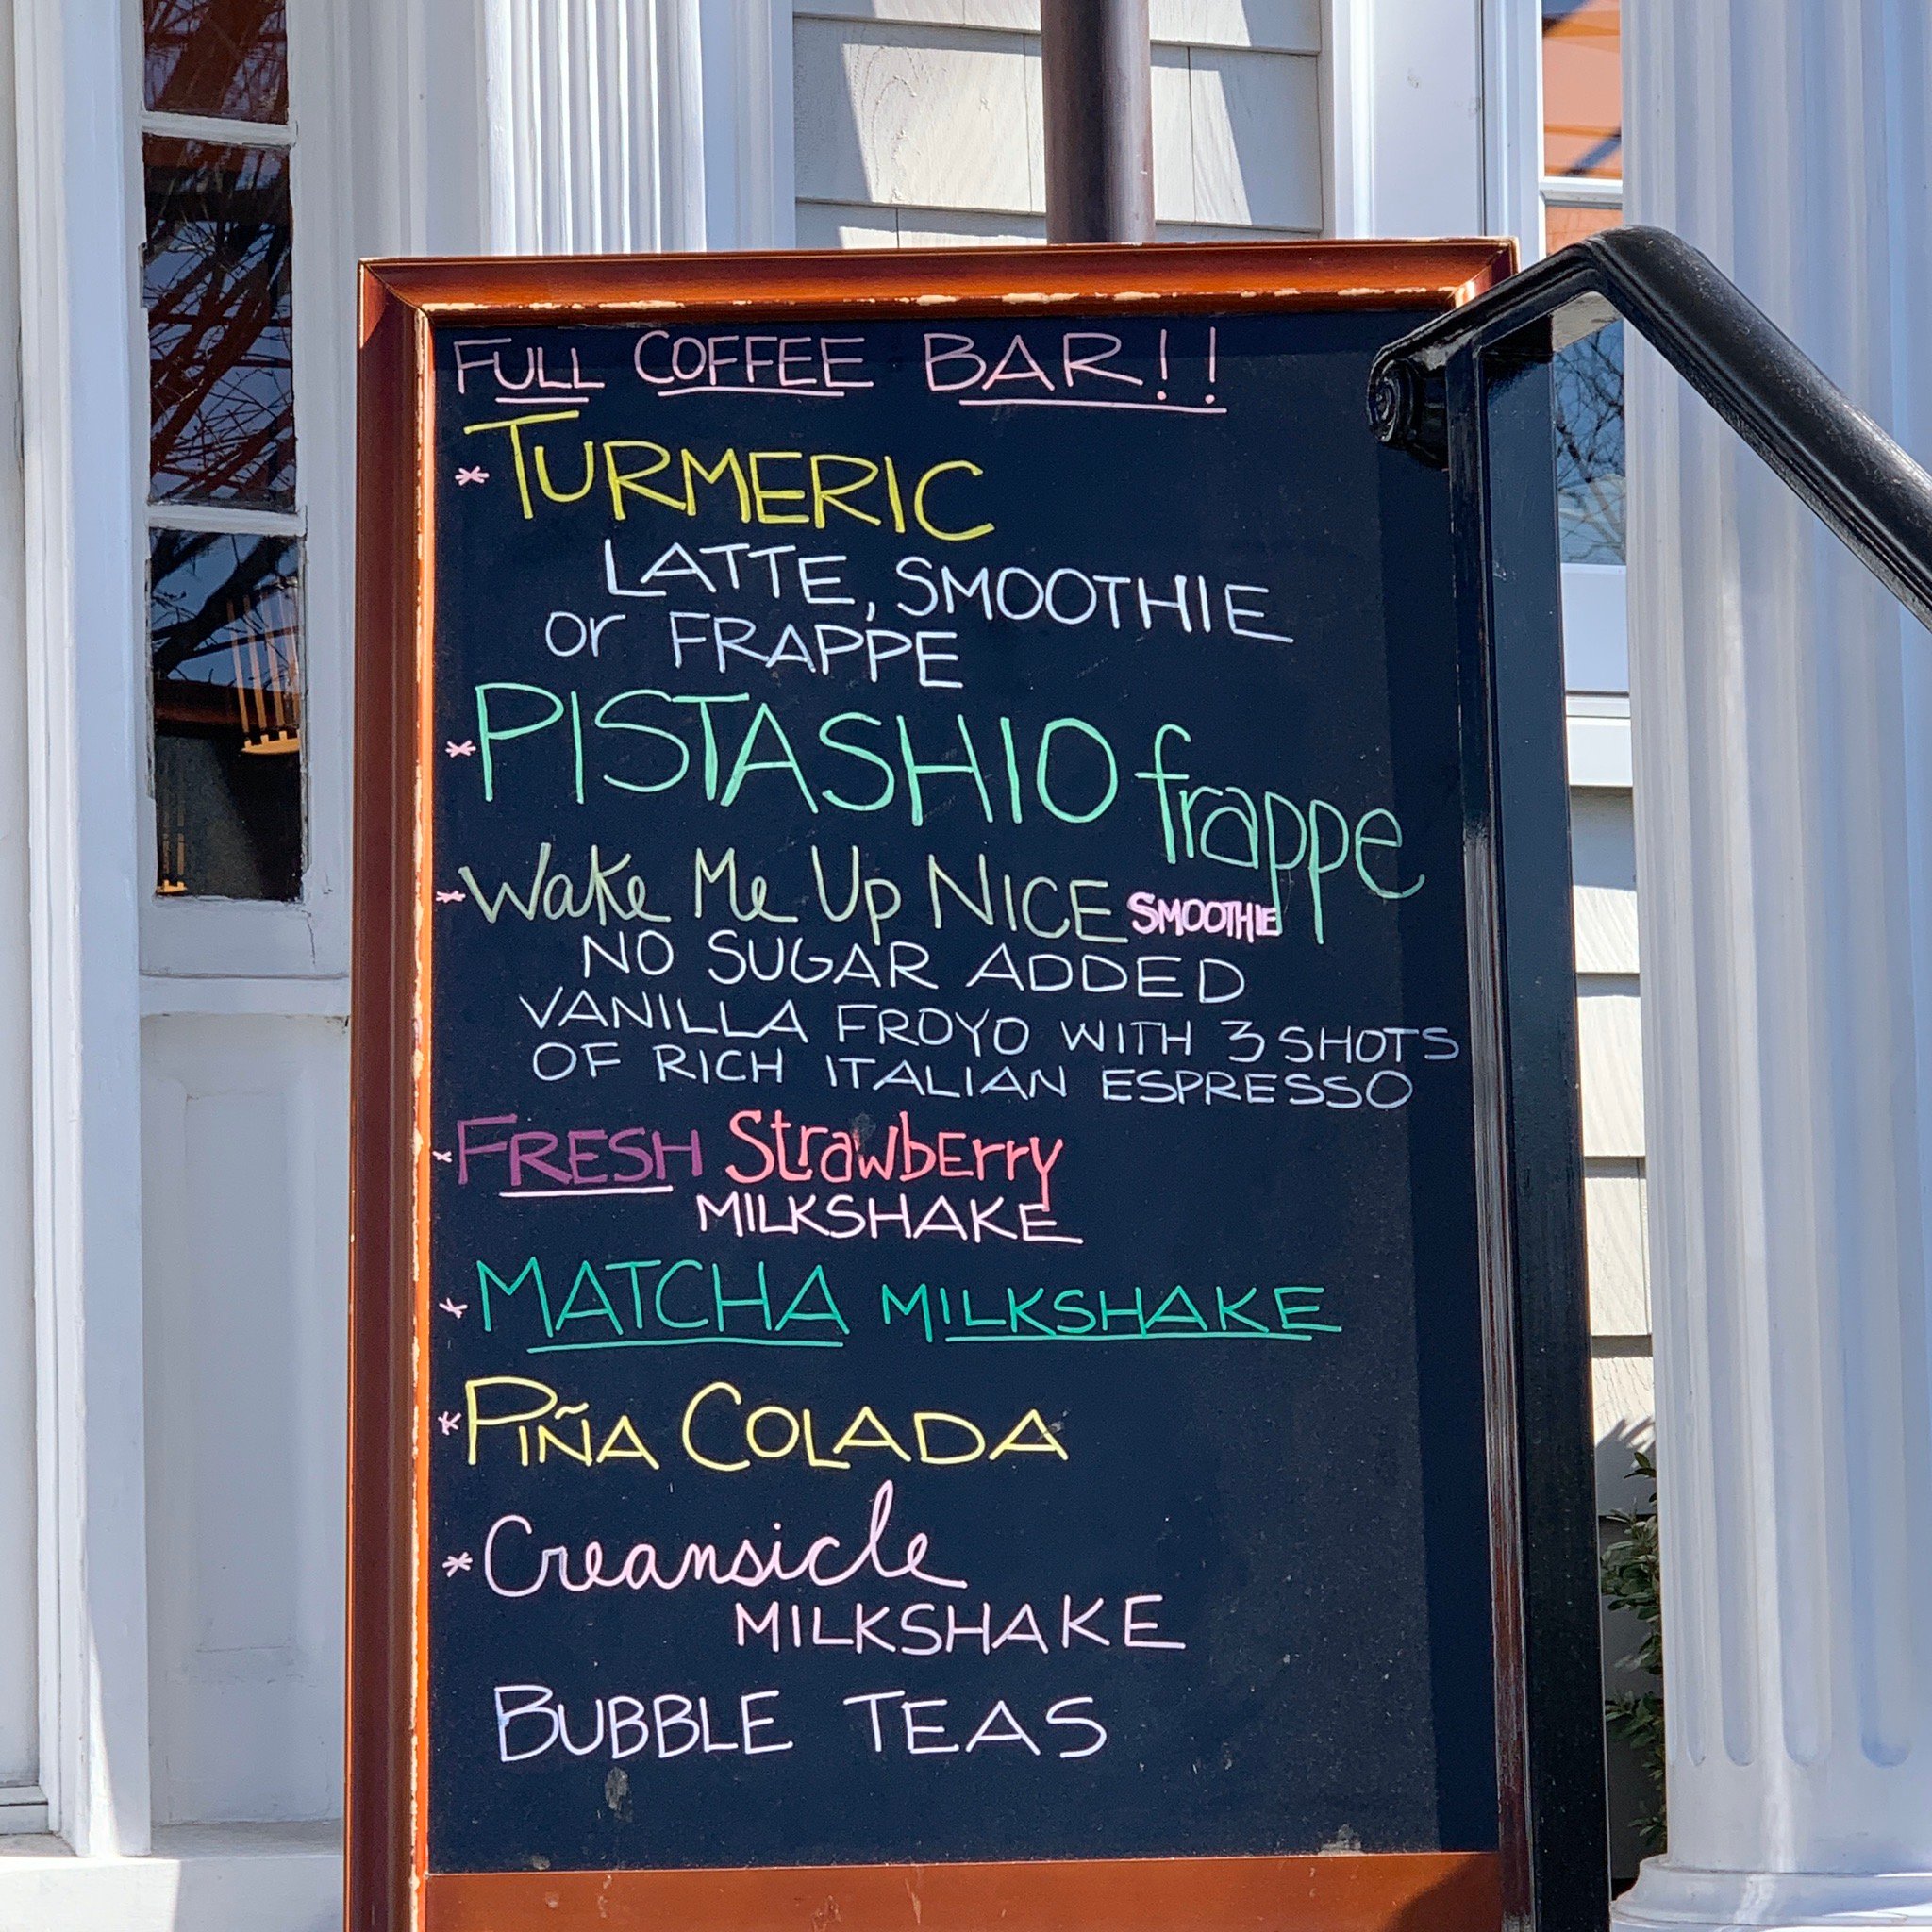 FULL COFFEE BAR!!
* TURMERIC
LATTE, SMOOTHIE
or FRAPPE
* PISTASHIO frappe
* Wake Me Up NICE SMOOTHIE
NO SUGAR ADDED
VANILLA FROYO WITH 3 SHOTS
OF RICH ITALIAN ESPRESSO
* FRESH StrawbErry
MILKSHAKE
* MATCHA MILKSHAKE
* PIÑA COLADA
* Creansicle
MILKSHAKE
BUBBLE TEAS